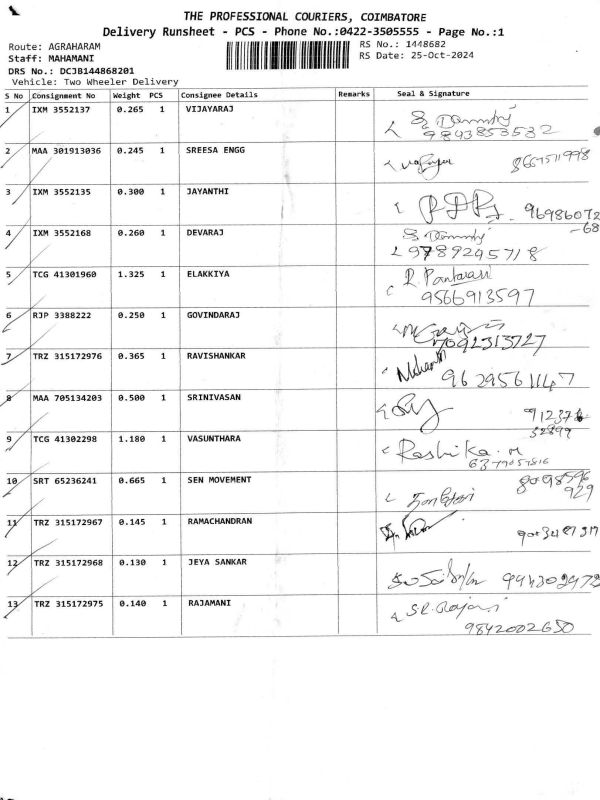 THE PROFESSIONAL COURIERS, COIMBATORE
Delivery Runsheet - PCS - Phone No.:0422-3505555 - Page No.:1
Route: AGRAHARAM RS No.: 1448682
Staff: MAHAMANI RS Date: 25-Oct-2024
DRS No.: DCJB144868201
Vehicle: Two Wheeler Delivery
S No Consignment No Weight PCS Consignee Details Remarks Seal & Signature
1 IXM 3552137 0.265 1 VIJAYARAJ
9843853532
2 MAA 301913036 0.245 1 SREESA ENGG
3 IXM 3552135 0.300 1 JAYANTHI 96986072
-68
4 IXM 3552168 0.260 1 DEVARAJ
9789245718
5 TCG 41301960 1.325 1 ELAKKIYA
9566913597
6 RJP 3388222 0.250 1 GOVINDARAJ
7092313727
7 TRZ 315172976 0.365 1 RAVISHANKAR
9629561147
8 MAA 705134203 0.500 1 SRINIVASAN
32899
9 TCG 41302298 1.180 1 VASUNTHARA Rashika. M
10 SRT 65236241 0.665 1 SEN MOVEMENT 8098596
929
11 TRZ 315172967 0.145 1 RAMACHANDRAN
12 TRZ 315172968 0.130 1 JEYA SANKAR
13 TRZ 315172975 0.140 1 RAJAMANI
9842002650